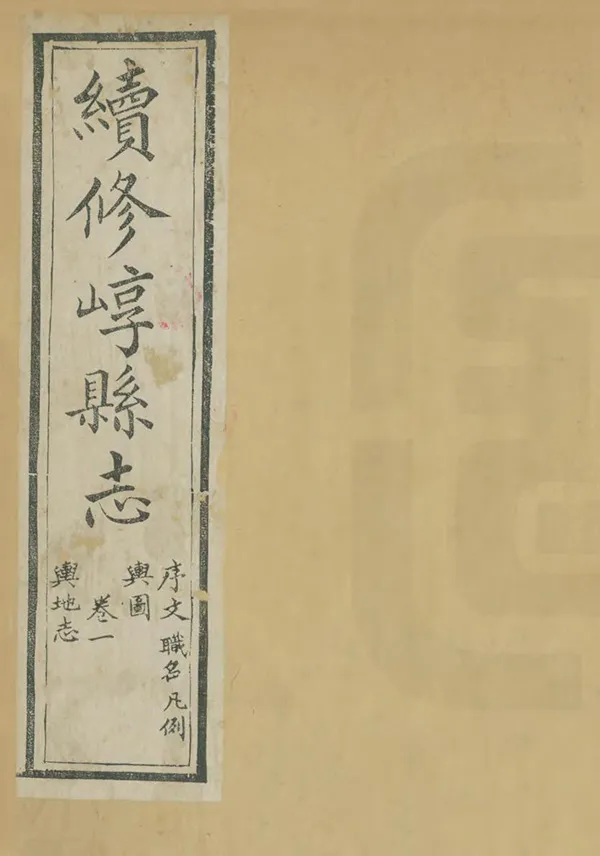 續修崞縣志
序文 職名 凡例
輿圖
卷一
輿地志